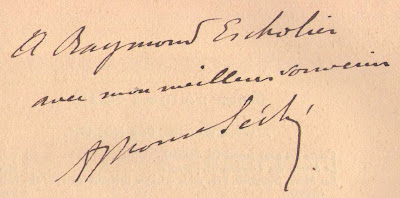 A Raymond Escholier
avec mon meilleur souvenir
Alphonse Séché